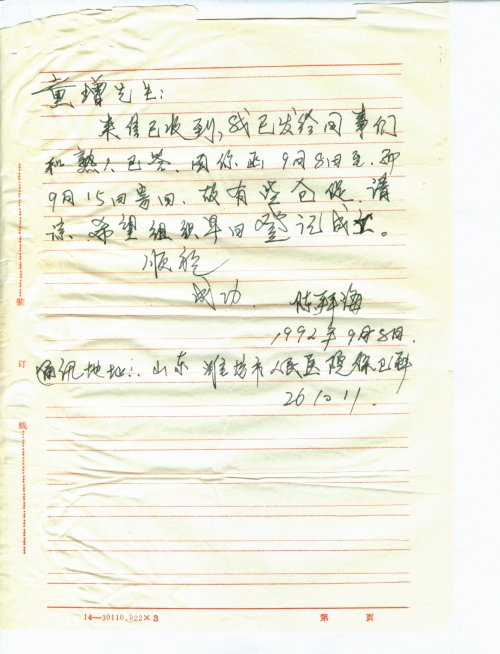 童增先生：
来信已收到，我已发给同事们
和熟人已答，因你函9月8日至，而
9月15日寄回，故有些仓促，请
谅，希望组织早日登记成立。
顺祝
成功
陈海
1992年9月8日．
通讯地址：山东潍坊市人民医院保卫科
261011．
装
订
线
14—30110.922×3
第 页